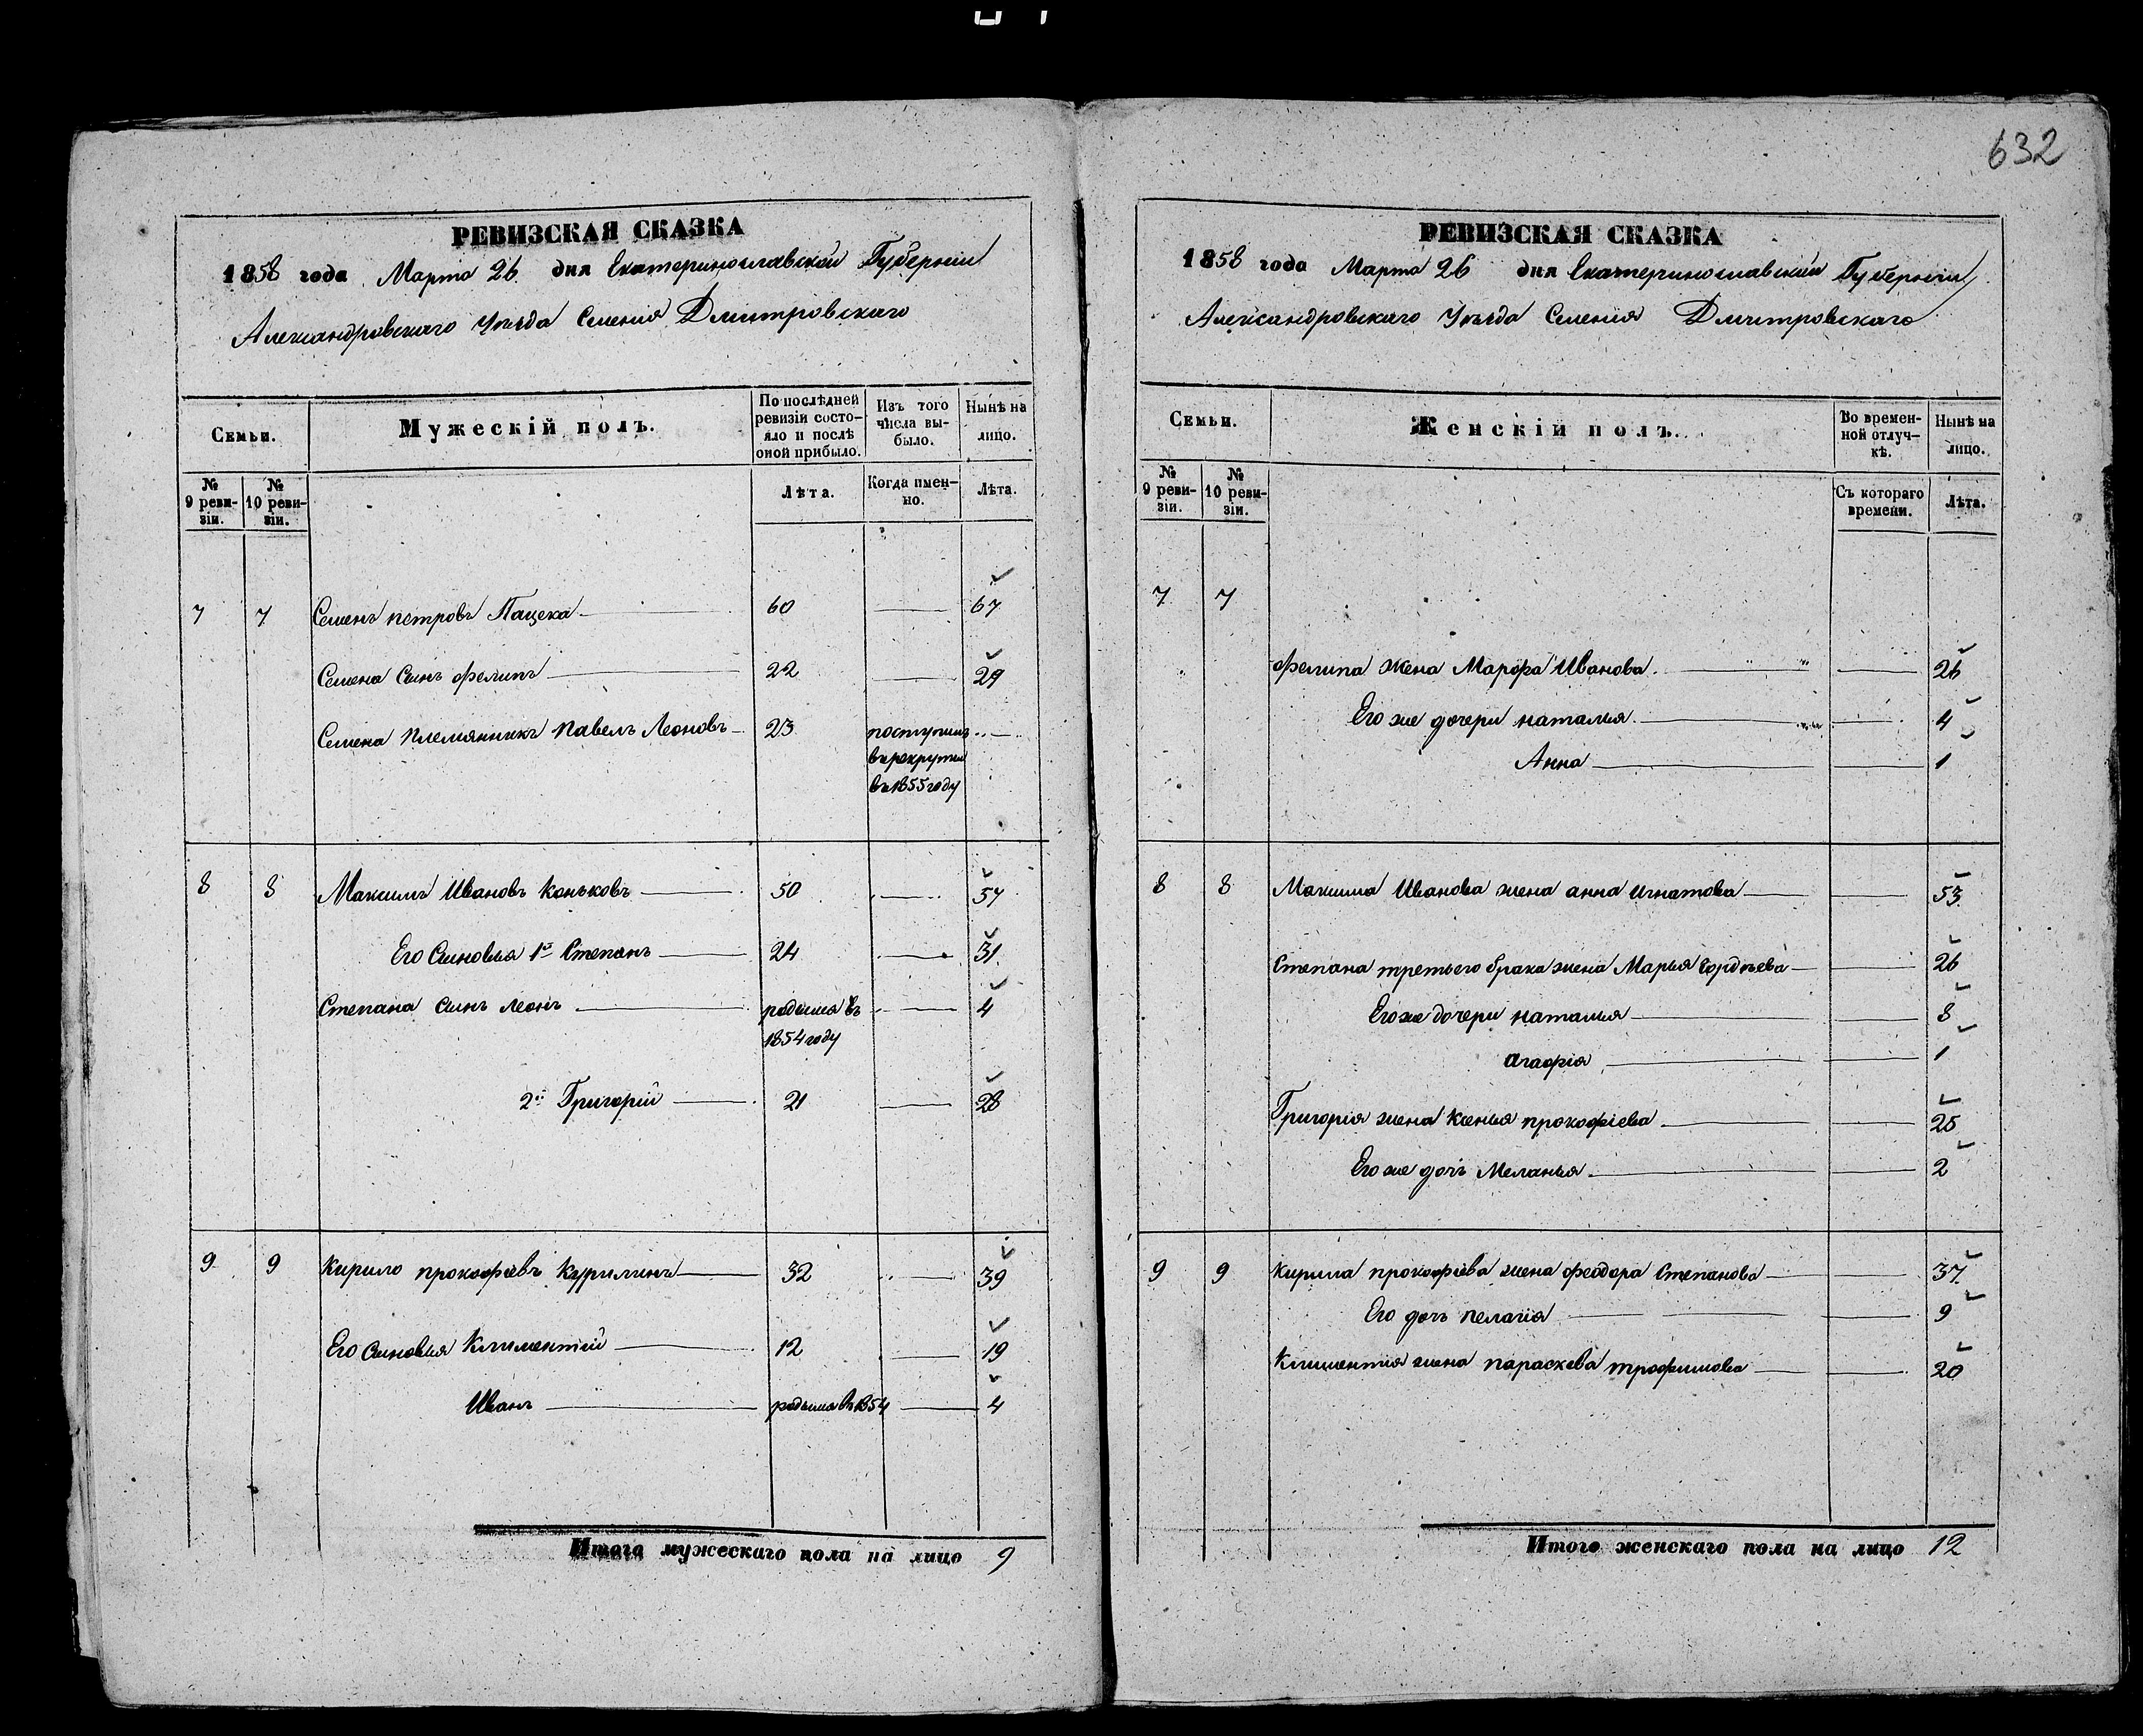 632
РЕВИЗСКАЯ СКАЗКА
1858 года Марта 26 дня Екатеринославской Губерніи
Александровскаго Уѣзда Селенія Дмитровскаго
Семьи.
Мужескій полъ.
По послѣдней ревизіи состо-яло и послѣ оной прибыло.
Изъ того числа вы-было.
Нынѣ на лицо.
№ 9 реви-зіи.
№ 10 реви-зіи.
Лѣта.
Когда имен-но.
Лѣта.
7 7 Семенъ петровъ Пацека 60 67
Семена Сынъ Филипъ 22 29
Семена племянникъ павелъ Леоновъ 23 поступилъ
в рекруты
въ 1855 году
8 8 Максимъ Ивановъ Коньковъ 50 57
Его Сыновья 1й Степанъ 24 31
Степана сынъ Леонъ родился въ 4
1854 году
2й Григорій 21 28
9 9 Кирило прокофіевъ 32 39
Его Сыновья Климентій 12 19
Иванъ родился въ 1854 4
Итого мужескаго пола на лицо 9
РЕВИЗСКАЯ СКАЗКА
1858 года Марта 26 дня Екатеринославской Губерніи
Александровскаго Уѣзда Селенія Дмитровскаго
Семьи.
Женскій полъ.
Во времен-ной отлуч-кѣ.
Нынѣ на лицо.
№ 9 реви-зіи.
№ 10 реви-зіи.
Съ котораго времени.
Лѣта.
7 7
Филипа жена Марфа Иванова 26
Его же дочери наталья 4
Анна 1
8 8 Максима Иванова жена анна игнатова 53
Степана третьего брака жена Марья 26
Его же дочери наталья 8
агафія 1
Григорія жена Ксенья прокофіева 25
Его же дочь Меланья 2
9 9 Кирила прокофіева жена феодора Степанова 37
Его дочь пелагія 9
Климентия жена параскева трофимова 20
Итого женскаго пола на лицо 12